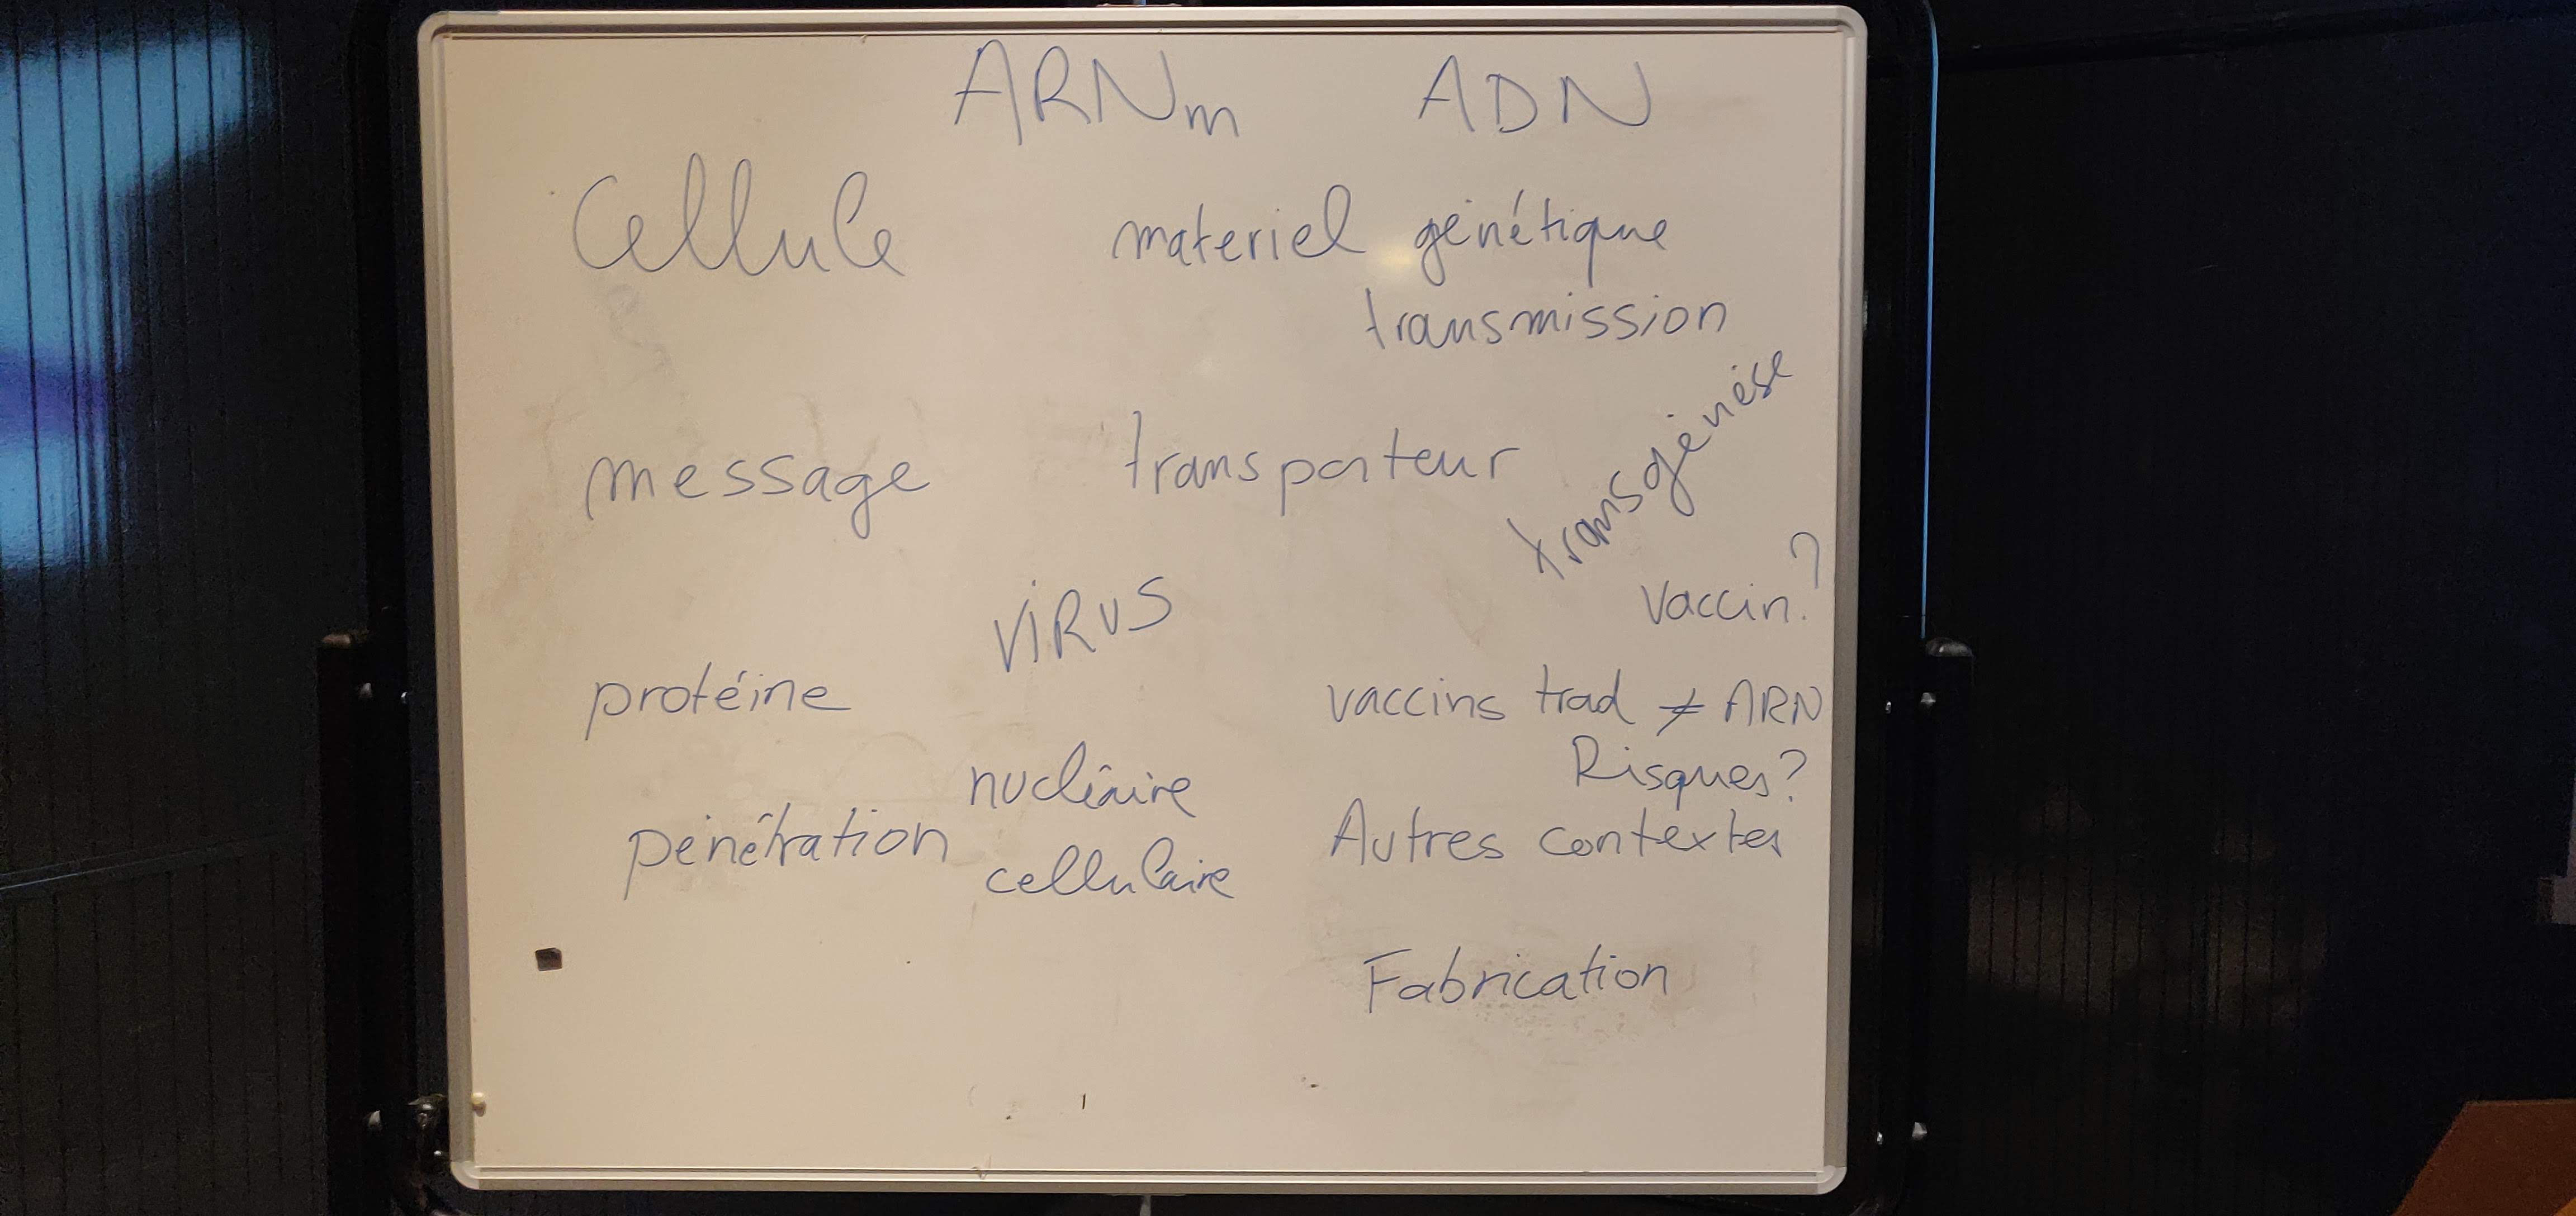 ARNm ADN
Cellule materiel génétique
transmission
message transporteur transgénèse
vaccin?
VIRUS
protéine vaccins trad ≠ ARN
Risques?
nucléaire
pénétration Autres contextes
cellulaire
Fabrication